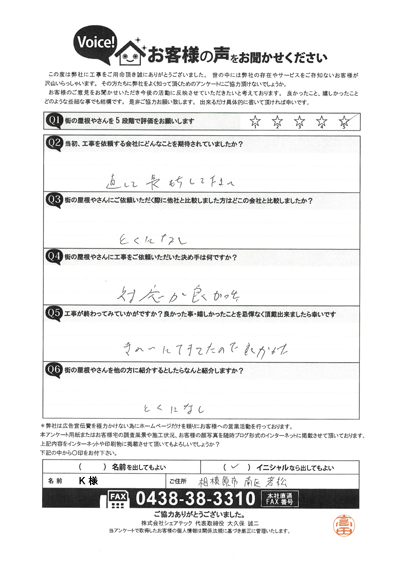 Voice!
お客様の声をお聞かせください
この度は弊社に工事をご用命頂き誠にありがとうございました。世の中には弊社の存在やサービスをご存知ないお客様が
沢山いらっしゃいます。その方たちに弊社をよく知って頂くためのアンケートにご協力頂けないでしょうか。
お客様のご意見をお聞かせいただき今後の活動に反映させていただきたいと考えております。良かったこと、嬉しかったこと
どのような些細な事でも結構です。是非ご協力お願い致します。出来るだけ具体的に書いて頂ければ幸いです。
Q1 街の屋根やさんを5段階で評価をお願いします ☆ ☆ ☆ ☆ ☆
Q2 当初、工事を依頼する会社にどんなことを期待されていましたか?
直して長もちしてほしい
Q3 街の屋根やさんにご依頼いただく際に他社と比較しました方はどこの会社と比較しましたか?
とくになし
Q4 街の屋根やさんに工事をご依頼いただいた決め手は何ですか?
対応が良かった
Q5 工事が終わってみていかがですか?良かった事・嬉しかったことを忌憚なく頂戴出来ましたら幸いです
きれいにできてたので良かった
Q6 街の屋根やさんを他の方に紹介するとしたらなんと紹介しますか?
とくになし
*弊社は広告宣伝費を極力かけない為にホームページだけを頼りにお客様への営業活動を行っております。
本アンケート用紙またはお客様宅の調査風景や施工状況、お客様の顔写真を随時ブログ形式のインターネットに掲載させて頂いております。
上記内容をインターネットや印刷物に掲載させて頂いてもよろしいでしょうか?
下記の中から〇印をお付下さい。
( )名前を出してもよい (✓)イニシャルなら出してもよい
名前 K様 ご住所 相模原市南区若松
FAX 0438-38-3310 本社直通FAX番号
ご協力ありがとうございました。
株式会社シェアテック 代表取締役 大久保 誠二
当アンケートで取得したお客様の個人情報は関係法規に基づき厳正に管理いたします。